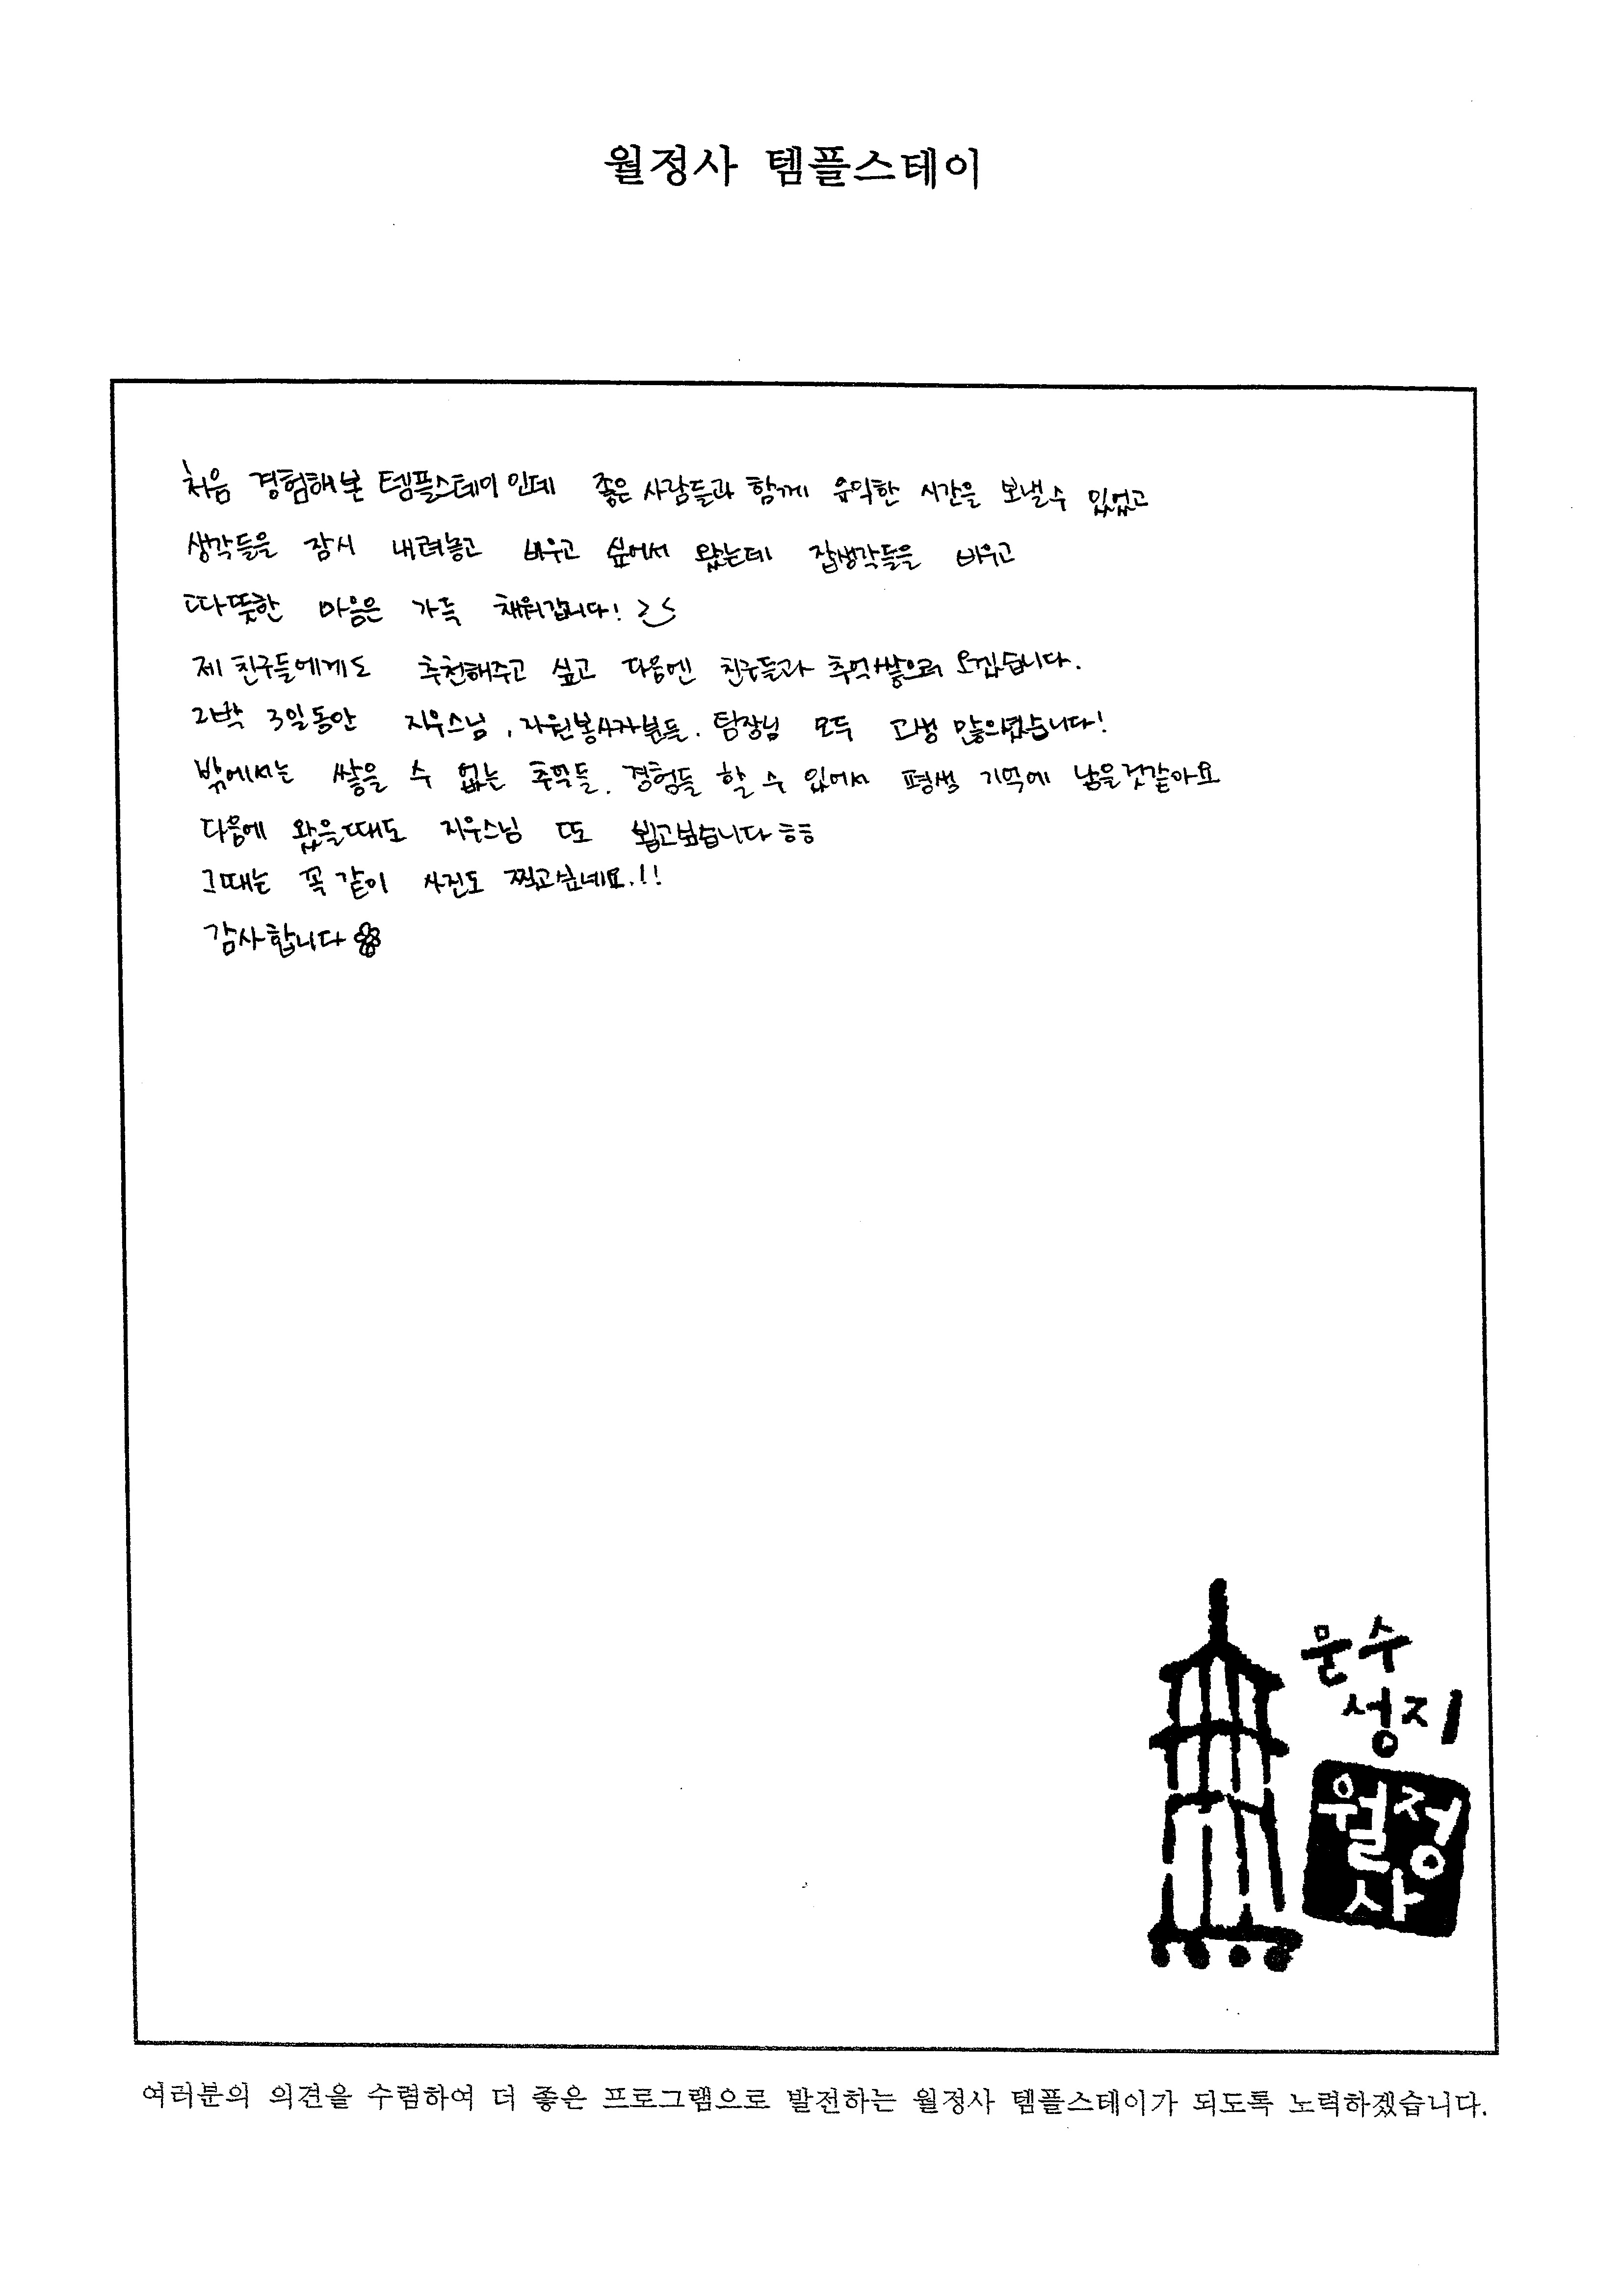 월정사 템플스테이
처음 경험해본 템플스테이인데 좋은 사람들과 함께 유익한 시간을 보낼수 있었고
생각들을 잠시 내려놓고 비우고 싶어서 왔는데 잡생각들을 비우고
따뜻한 마음은 가득 채워갑니다!
제 친구들에게도 추천해주고 싶고 다음엔 친구들과 추억쌓으러 오겠습니다.
2박 3일동안 지우스님, 자원봉사자분들, 팀장님 모두 고생 많으셨습니다!
밖에서는 쌓을 수 없는 추억들, 경험들 할 수 있어서 평생 기억에 남을것같아요
다음에 왔을때도 지우스님 또 뵙고싶습니다 ㅎㅎ
그때는 꼭 같이 사진도 찍고싶네요.!!
감사합니다
문수
성지
월정
사
여러분의 의견을 수렴하여 더 좋은 프로그램으로 발전하는 월정사 템플스테이가 되도록 노력하겠습니다.